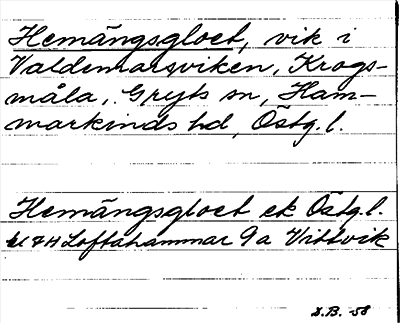 Hemängsgloet, vik i
Valdemarsviken, Krogs-
måla, Gryts sn, Ham-
markinds hd, Östg. l.
Hemängsgloet ek Östg. l.
7H Loftahammar 9a Vittvik
D.B. -58